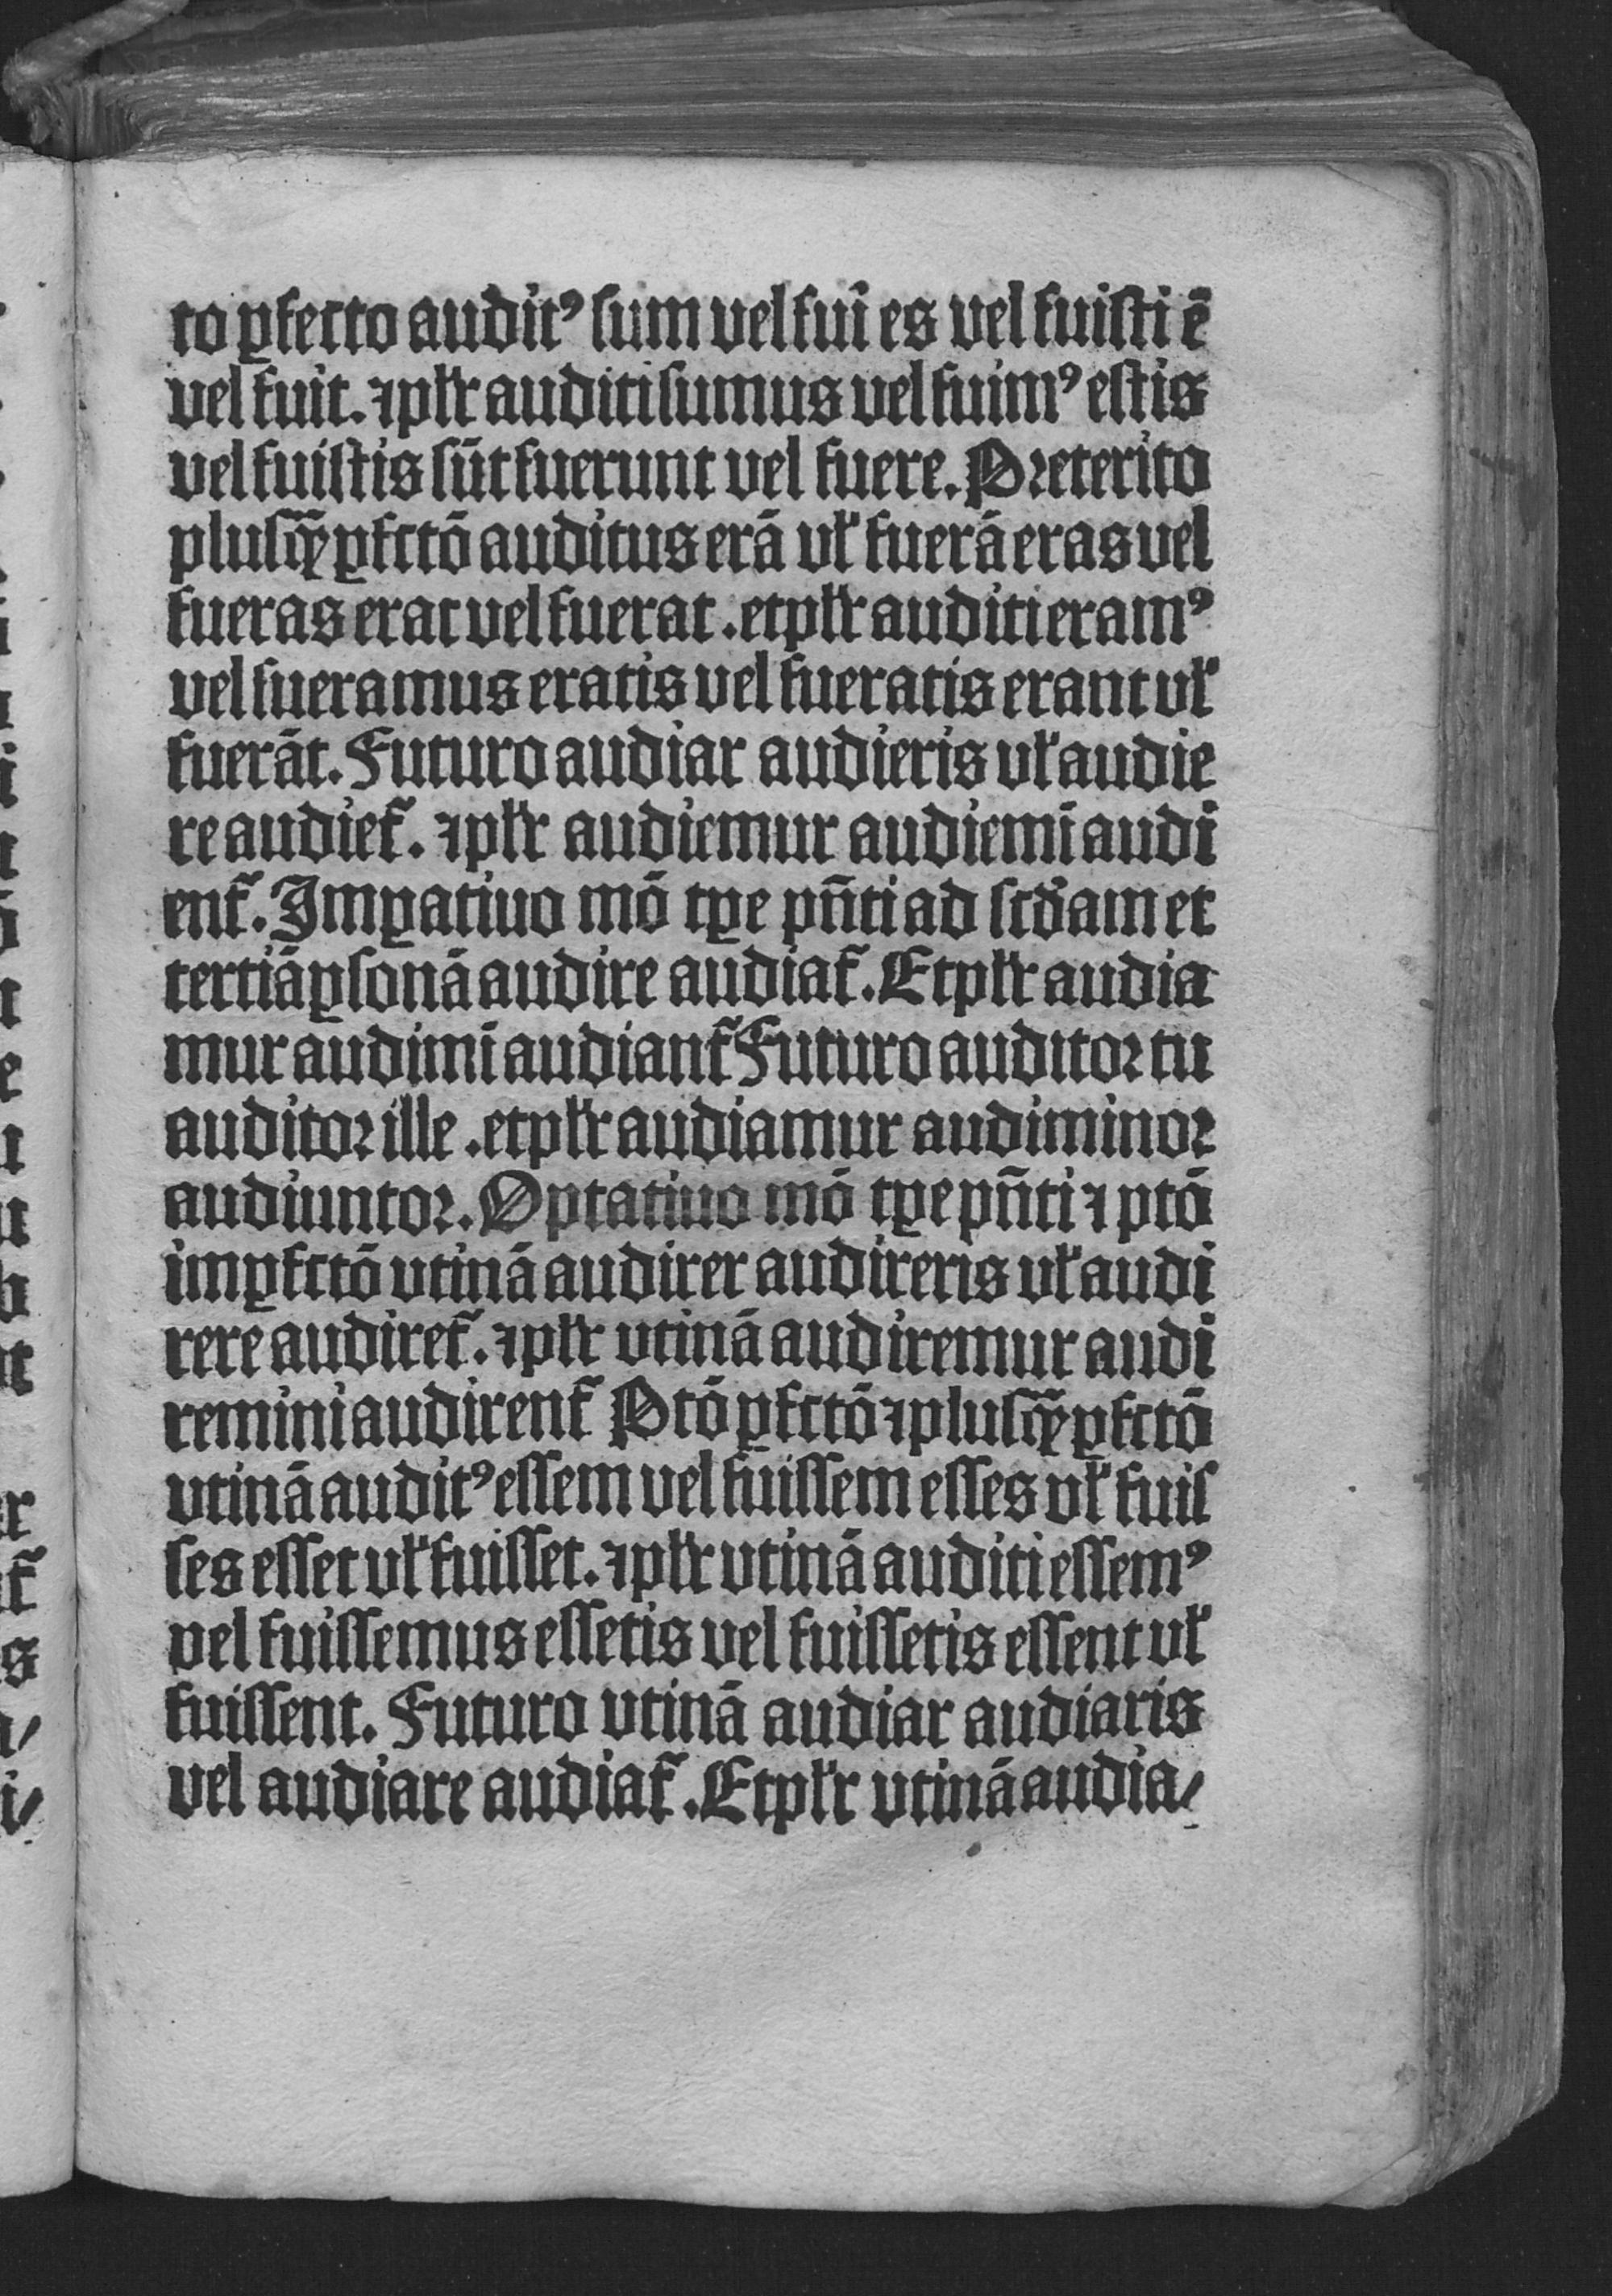 to ꝑfecto audit᷒ sum vel fui es vel fuisti ē
vel fuit. ⁊ plꝛ̃r auditi sumus vel fuim᷒ estis
vel fuistis sūt fuerunt vel fuere. Preterito
plusꝙ̃ ꝑfctō auditus erā vl̛ fuerā eras vel
fueras erat vel fuerat. et pl̛r auditi eram᷒
vel fueramus eratis vel fueratis erant vl̛
fuerāt. Futuro audiar audieris vl̛ audie
re audiet̃. ⁊ pl̛r audiemur audiemī audi
ent̃. Imꝑatiuo mō tꝑe pñti ad scđam et
tertiā ꝑsonā audire audiat̃. Et pl̛r audia
mur audimī audiant̃ Futuro auditor tu
auditor ille. et pl̛r audiamur audiminor
audiuntor. Optatiuo mō tꝑe pñti ⁊ ptō
imꝑfctō vtinā audirer audireris vl̛ audi
rere audiret̃. ⁊ pl̛r vtinā audiremur audi
remini audirent̃ Ptō ꝑfctō ⁊ plusꝙ̃ ꝑfctō
vtinā audit᷒ essem vel fuissem esses vl̛ fuis
ses esset vl̛ fuisset. ⁊ pl̛r vtinā auditi essem᷒
vel fuissemus essetis vel fuissetis essent vl̛
fuissent. Futuro vtinā audiar audiaris
vel audiare audiat̃. Et pl̛r vtinā audia/